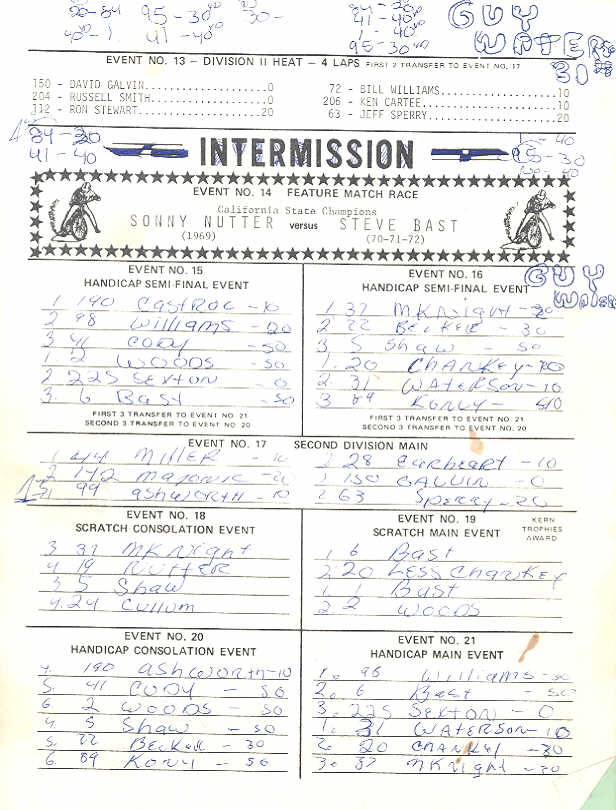 20-84 95-30 30-
40-1. 41-40
84-20
41-40
1-40
95-30
GUY
WATER
30
EVENT NO. 13 – DIVISION II HEAT – 4 LAPS FIRST 2 TRANSFER TO EVENT NO. 17
150 - DAVID GALVIN..................0
204 - RUSSELL SMITH.................0
112 - RON STEWART..................20
72 - BILL WILLIAMS.................10
206 - KEN CARTEE...................10
63 - JEFF SPERRY..................20
84-30
41-40
INTERMISSION
1-40
95-30
EVENT NO. 14 FEATURE MATCH RACE
California State Champions
SONNY NUTTER versus STEVE BAST
(1969) (70-71-72)
GUY
EVENT NO. 15
HANDICAP SEMI-FINAL EVENT
1 190 CASTROL -10
2 98 WILLIAMS -20
3 41 CODY -50
1. 2 WOODS -50
2 225 SEXTON 0
3. 6 BAST -50
FIRST 3 TRANSFER TO EVENT NO. 21
SECOND 3 TRANSFER TO EVENT NO. 20
EVENT NO. 16
HANDICAP SEMI-FINAL EVENT
1. 37 MKNIGHT -30
2 22 BECKER - 30
3 5 SHAW - 50
1. 20 CHANKEY
2. 31 WATERSON -10
3 89 KONLY - 40
FIRST 3 TRANSFER TO EVENT NO. 21
SECOND 3 TRANSFER TO EVENT NO. 20
EVENT NO. 17 SECOND DIVISION MAIN
1 44 MILLER - 10
2 142
99 ASHWORTH - 10
2 28 EARHEART -10
2 150 GALVIN -0
2 63 SPERRY -20
EVENT NO. 18
SCRATCH CONSOLATION EVENT
3 37 MKNIGHT
4 19 NUTTER
3 5 SHAW
4. 24 CULLUM
EVENT NO. 19
SCRATCH MAIN EVENT
KERN
TROPHIES
AWARD
1 6 BAST
2 20 LESS CHANKEY
1 1 BAST
2 2 WOODS
EVENT NO. 20
HANDICAP CONSOLATION EVENT
4. 190 ASHWORTH -10
5. 41 CODY - 50
6 2 WOODS - 50
4 5 SHAW - 50
5. 22 BECKER - 30
6 89 KONY - 50
EVENT NO. 21
HANDICAP MAIN EVENT
1. 98 WILLIAMS -30
2. 6 BAST - 50
3. 225 SEXTON - 0
1. 31 WATERSON -10
2. 20 CHANKEY -30
3. 37 MKNIGHT -30